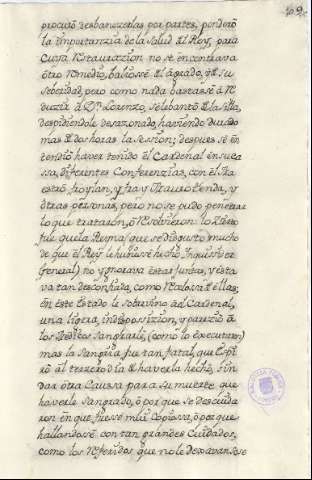 procurò desbanezerlas por partes, ponderò
la importanzia de la salud del Rey, para
cuya Restaurazion no se encontrava
otro Remedio, baliosse del agrado, y de su
seriedad, pero como nada bastasse â
duzir â Dn. Lorenzo, se lebantò de la silla,
despidiendole desazonado, haviendo durado
mas de dos horas la session; despues se en
tendiò haver tenido el Cardenal en su ca
sa, diferentes Conferenzias, con el Ma
estro froylan, y fray
otras personas, pero no se pudo penetrar
lo que trataron, ô Resolvieron lo zierto
fue que la Reyna (que se disgustò mucho
de que el Rey le huviesse hecho Inquisitor
General) no ygnorava estas juntas, y esta
va tan desconfiada, como Rezelosa de ellas;
en este estado le sobrevino al Cardenal,
una ligera, indisposizion, y parezio â
los Medicos sangrarle, (como lo executaron)
mas la sangria fue tan fatal, que Espi
rò al terzero dia de haverla hecho, sin
dar otra Caussa para su muerte que
haverle sangrado, ô por que se descuida
ron en que fuesse mui Copiossa, ô por que
hallandosse con tan grandes Cuidados,
como los Referidos que no le dexavan sose